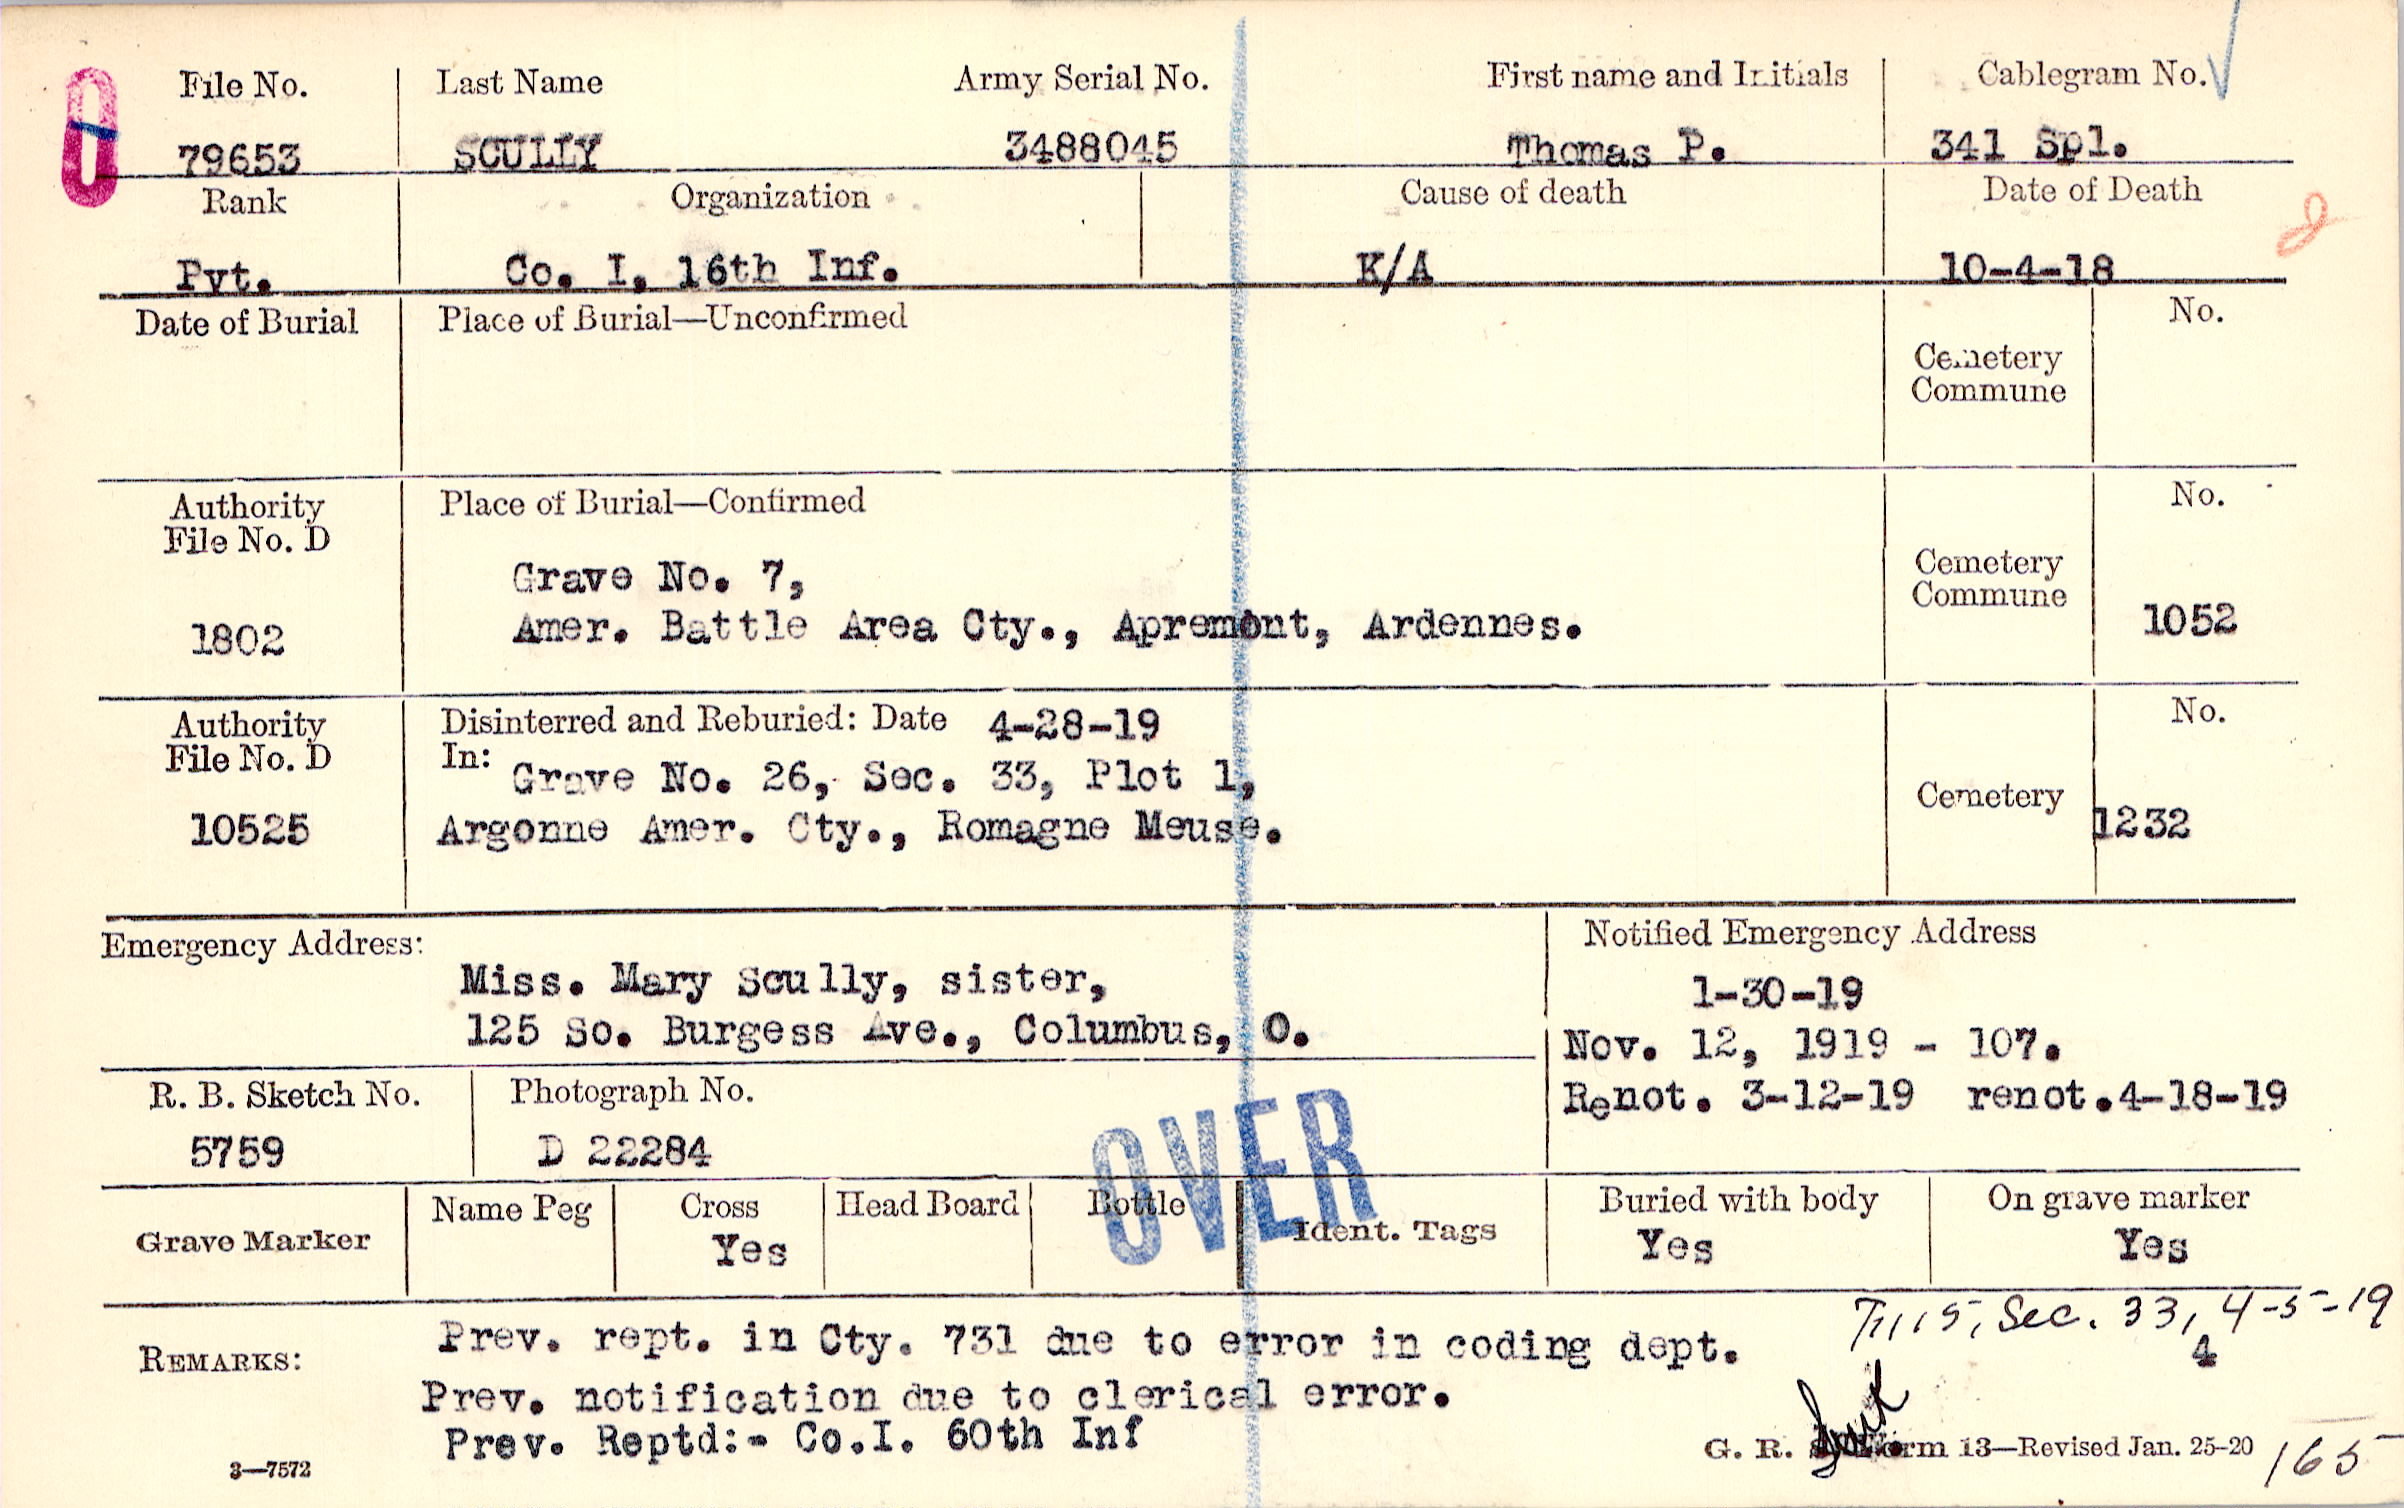 File No. Last Name Army Serial No. First name and Initials Cablegram No.
79653 SCULLY 3488045 Thomas P. 341 Spl.
Rank Organization Cause of death Date of Death
Pvt. Co. I, 16th Inf. K/A 10-4-18
Date of Burial Place of Burial—Unconfirmed No.
Cemetery
Commune
Authority Place of Burial—Confirmed No.
File No. D
Grave No. 7,
Cemetery
Commune
1802 Amer. Battle Area Cty., Apremont, Ardennes. 1052
Authority Disinterred and Reburied: Date 4-28-19 No.
File No. D In: Grave No. 26, Sec. 33, Plot 1,
Cemetery
10525 Argonne Amer. Cty., Romagne Meuse. 1232
Emergency Address: Notified Emergency Address
Miss. Mary Scully, sister, 1-30-19
125 So. Burgess Ave., Columbus, O. Nov. 12, 1919 - 107.
R. B. Sketch No. Photograph No. Renot. 3-12-19 renot.4-18-19
5759 D 22284
OVER
Grave Marker Name Peg Cross Head Board Bottle Ident. Tags Buried with body On grave marker
Yes Yes Yes
Sec. 33, 4-5-19
4
REMARKS: Prev. rept. in Cty. 731 due to error in coding dept.
Prev. notification due to clerical error.
Prev. Reptd:- Co.I. 60th Inf
3—7572 G. R. Form 13—Revised Jan. 25-20 165